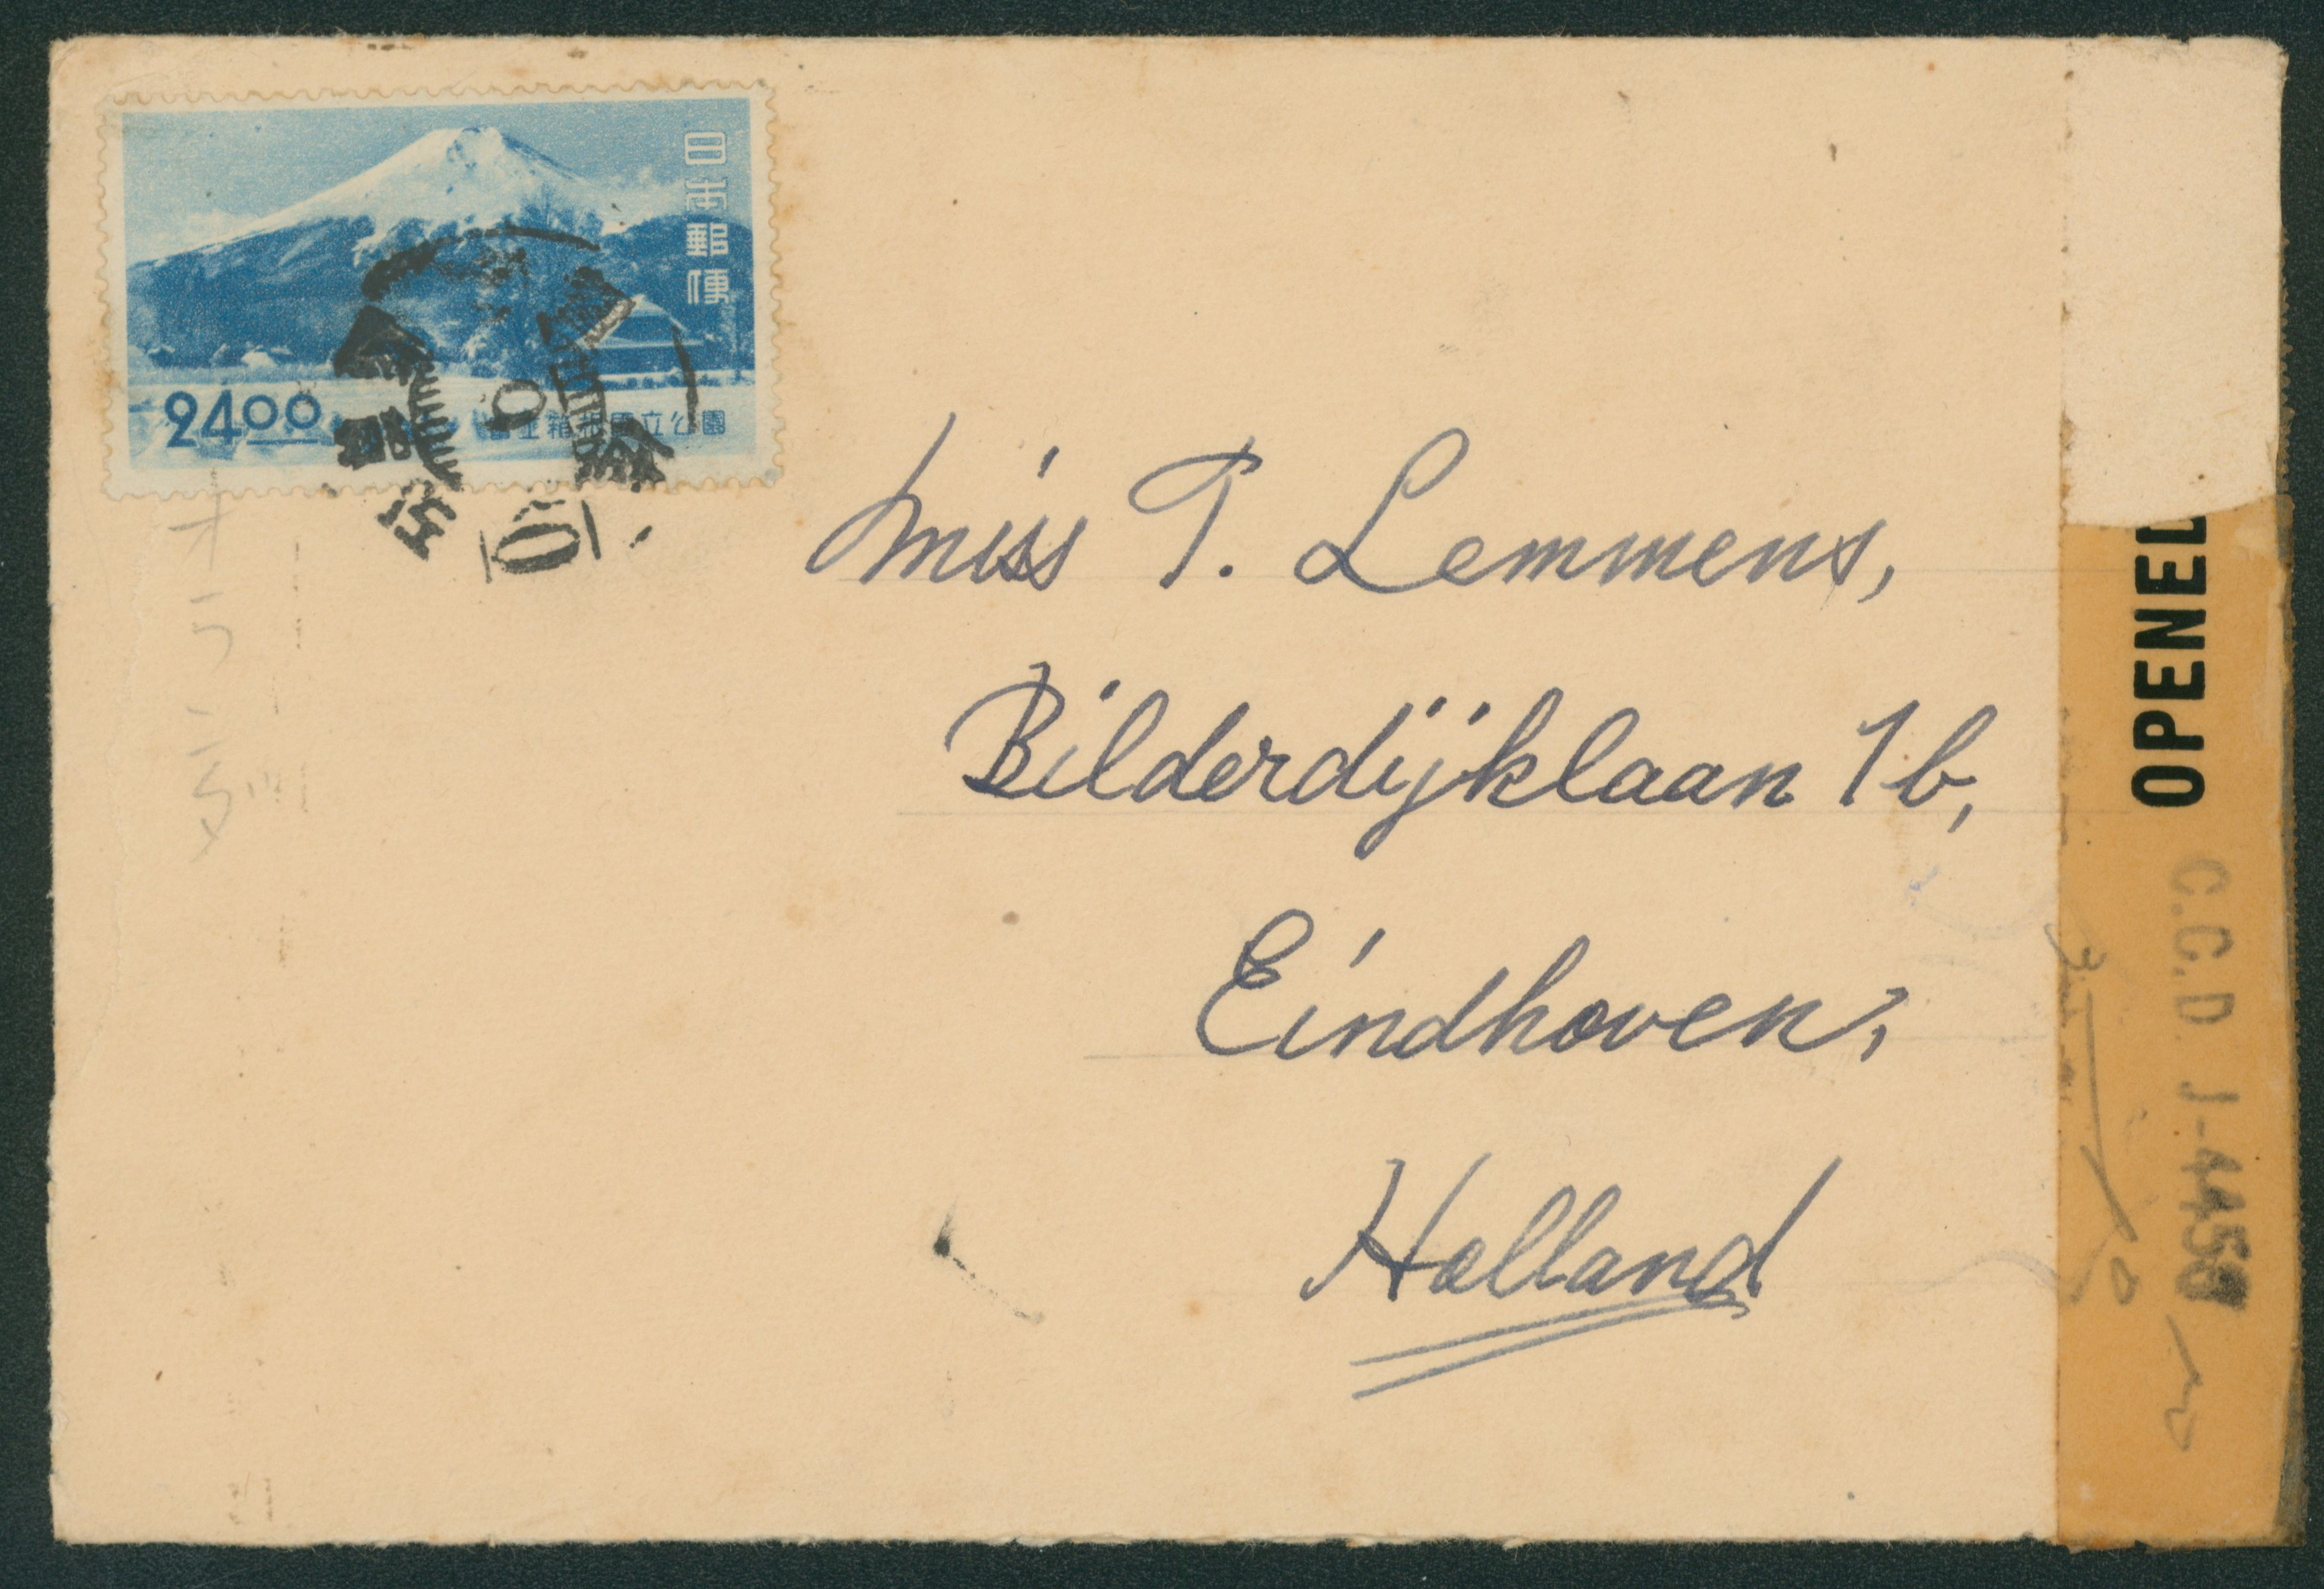 日本郵便
24.00
富士箱根國立公園
Miss T. Lemmens,
Bilderdijklaan 1b,
Eindhoven,
Holland
OPENED
C.C.D. J-4458